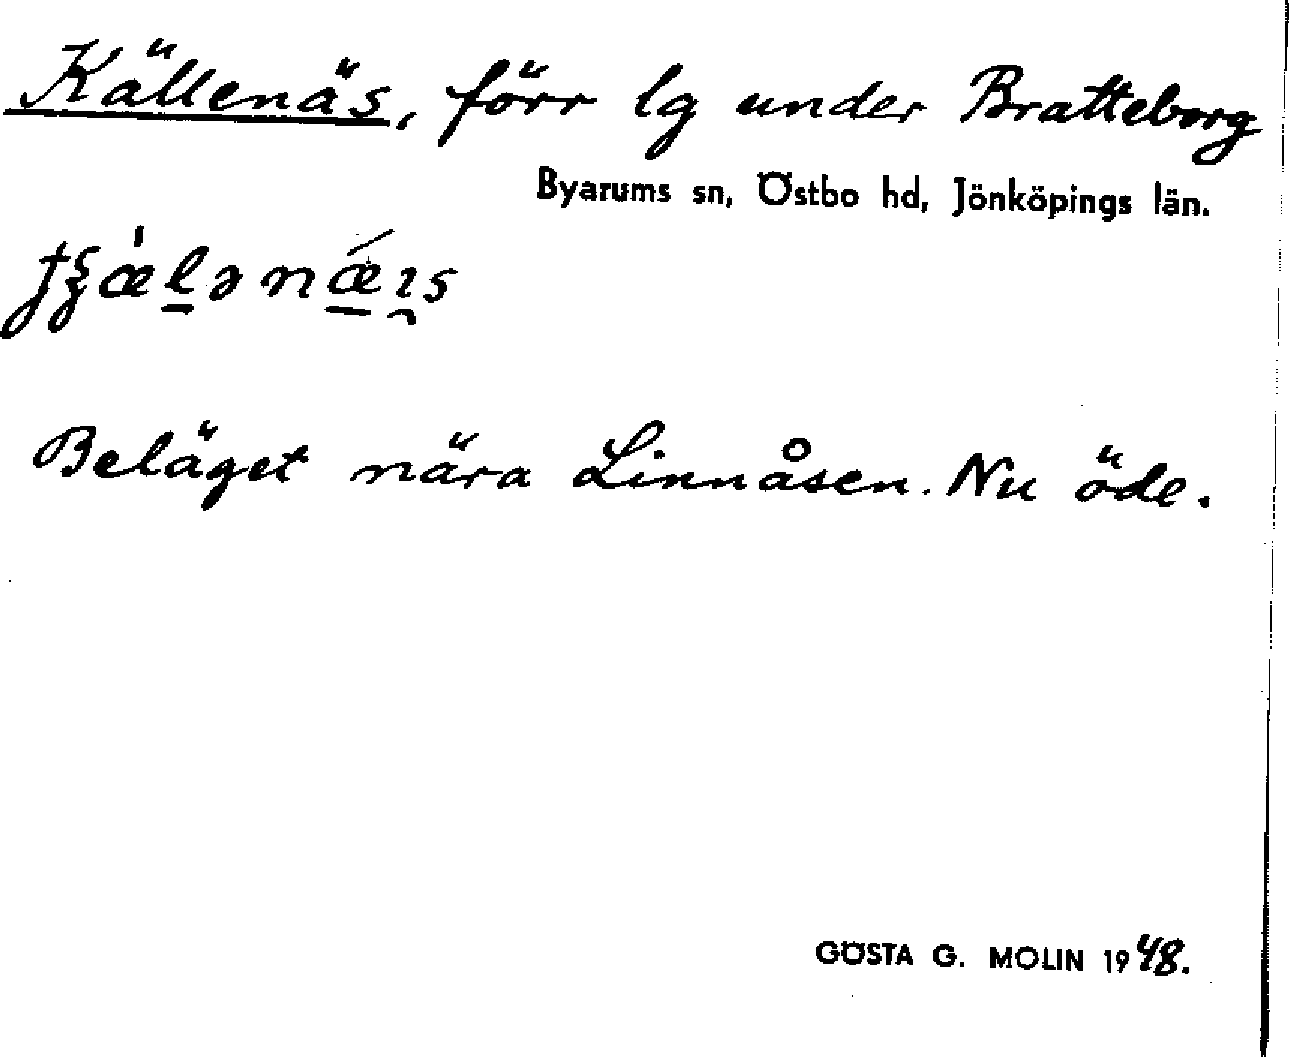 Källenäs, förr lg under Bratteborg
Byarums sn, Östbo hd, Jönköpings län.
Beläget nära Linnåsen. Nu öde.
GÖSTA G. MOLIN 1948.